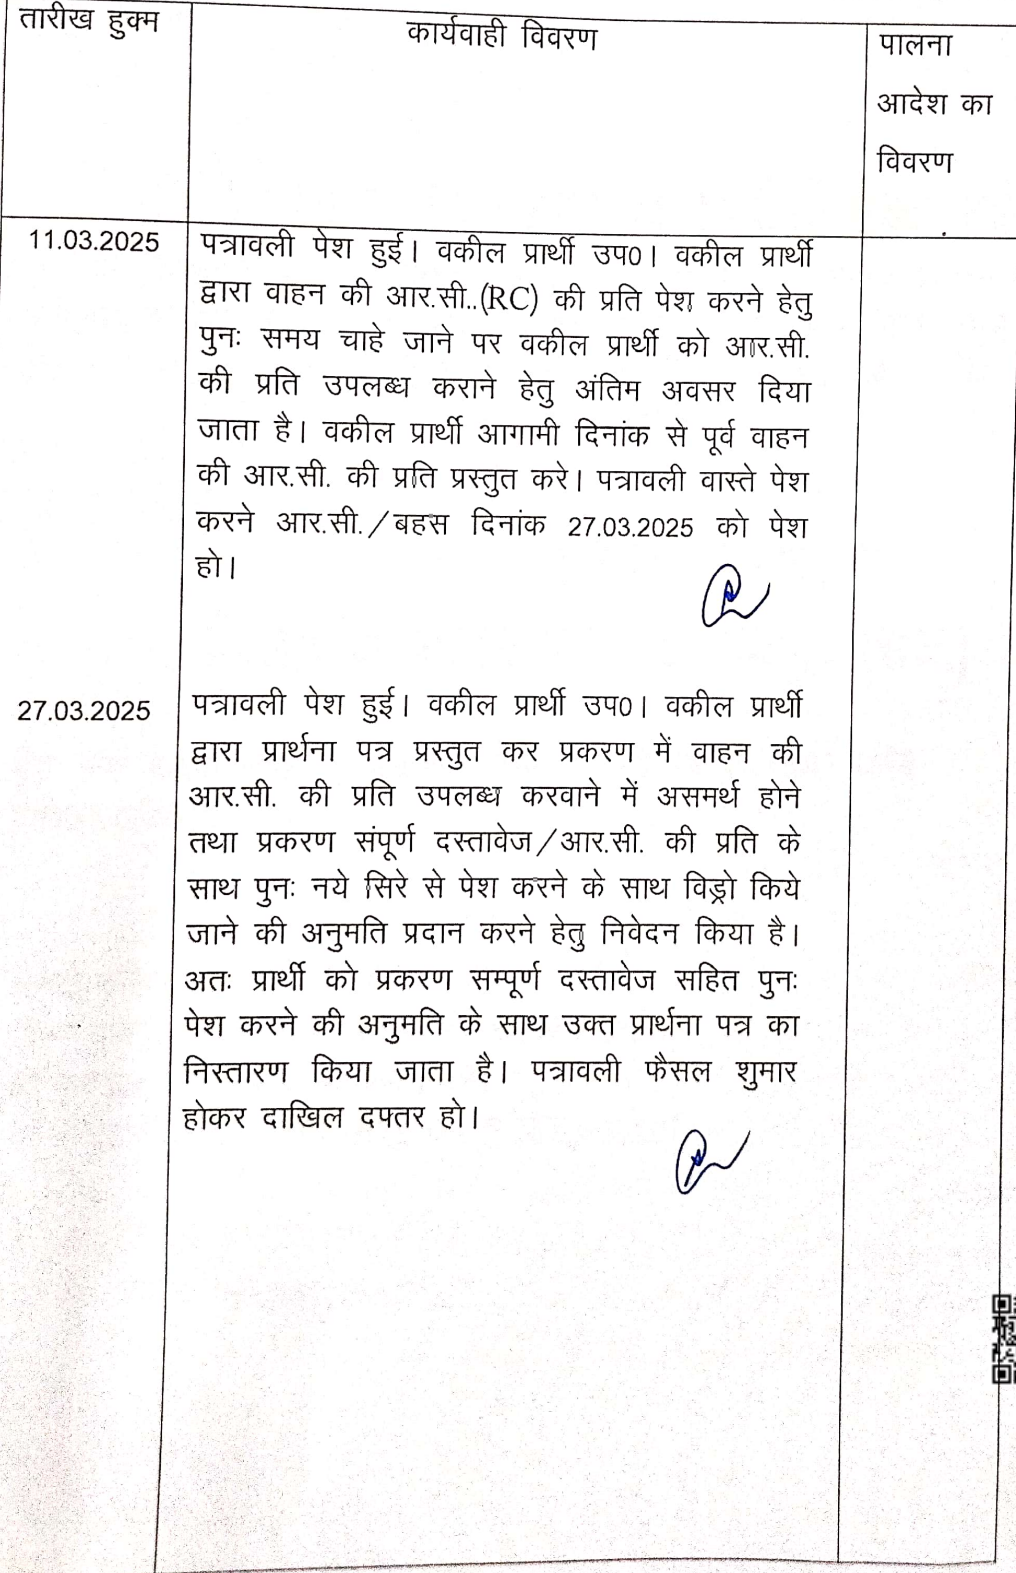 तारीख हुक्म
कार्यवाही विवरण
पालना
आदेश का
विवरण
11.03.2025
पत्रावली पेश हुई। वकील प्रार्थी उप0। वकील प्रार्थी
द्वारा वाहन की आर.सी..(RC) की प्रति पेश करने हेतु
पुनः समय चाहे जाने पर वकील प्रार्थी को आर.सी.
की प्रति उपलब्ध कराने हेतु अंतिम अवसर दिया
जाता है। वकील प्रार्थी आगामी दिनांक से पूर्व वाहन
की आर.सी. की प्रति प्रस्तुत करे। पत्रावली वास्ते पेश
करने आर.सी./बहस दिनांक 27.03.2025 को पेश
हो।
27.03.2025
पत्रावली पेश हुई। वकील प्रार्थी उप0। वकील प्रार्थी
द्वारा प्रार्थना पत्र प्रस्तुत कर प्रकरण में वाहन की
आर.सी. की प्रति उपलब्ध करवाने में असमर्थ होने
तथा प्रकरण संपूर्ण दस्तावेज/आर.सी. की प्रति के
साथ पुनः नये सिरे से पेश करने के साथ विड्रो किये
जाने की अनुमति प्रदान करने हेतु निवेदन किया है।
अतः प्रार्थी को प्रकरण सम्पूर्ण दस्तावेज सहित पुनः
पेश करने की अनुमति के साथ उक्त प्रार्थना पत्र का
निस्तारण किया जाता है। पत्रावली फैसल शुमार
होकर दाखिल दफ्तर हो।